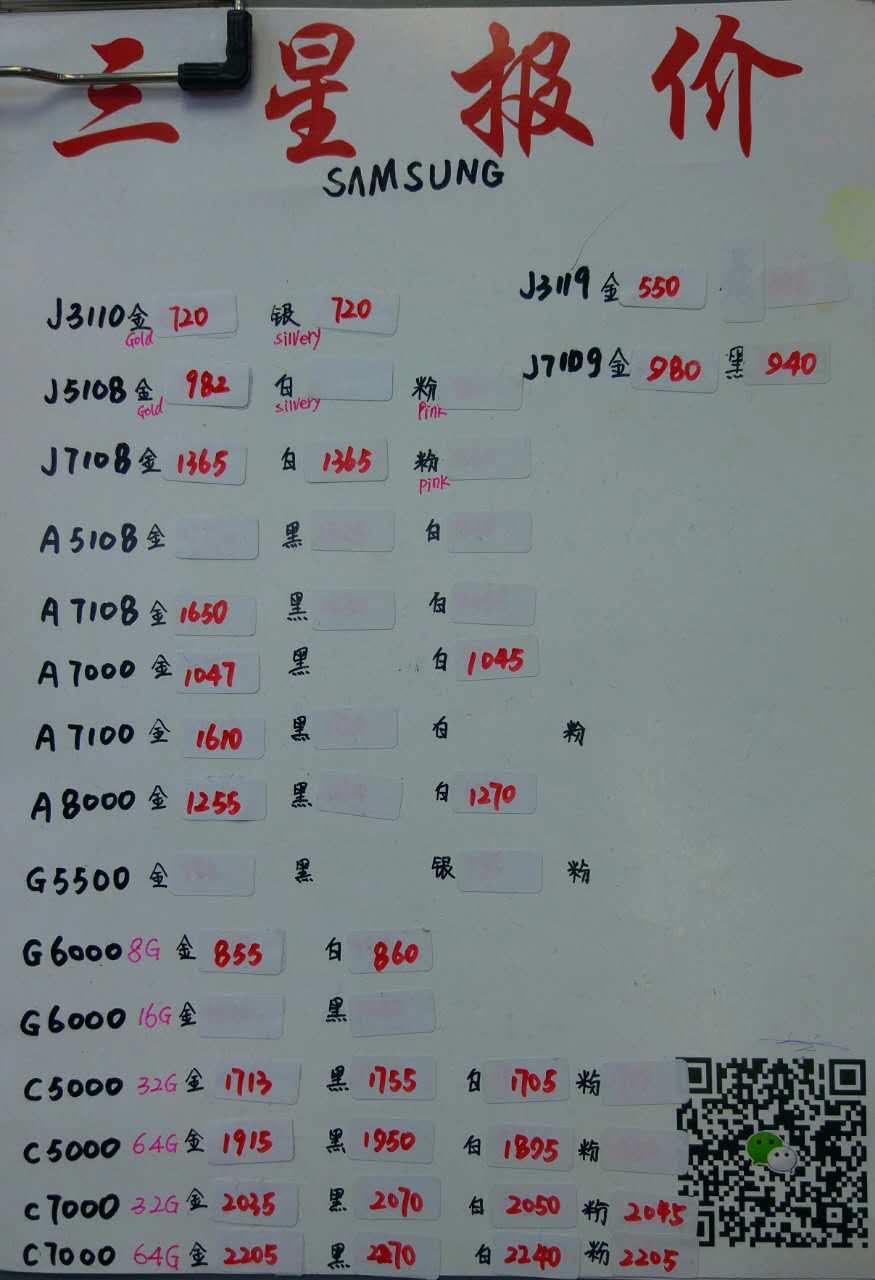 三星报价
SAMSUNG
J3110 金 720 银 720
Gold sillery
J3119 金 550
J5108 金 982 白 粉
Gold sillery Pink
J7109 金 980 黑 940
J7108 金 1365 白 1365 粉
pink
A5108 金 黑 白
A7108 金 1650 黑 白
A7000 金 1047 黑 白 1045
A7100 金 1610 黑 白 粉
A8000 金 1255 黑 白 1270
G5500 金 黑 银 粉
G6000 8G 金 855 白 860
G6000 16G 金 黑
C5000 32G 金 1713 黑 1755 白 1705 粉
C5000 64G 金 1915 黑 1950 白 1895 粉
C7000 32G 金 2035 黑 2070 白 2050 粉 2045
C7000 64G 金 2205 黑 2270 白 2240 粉 2205